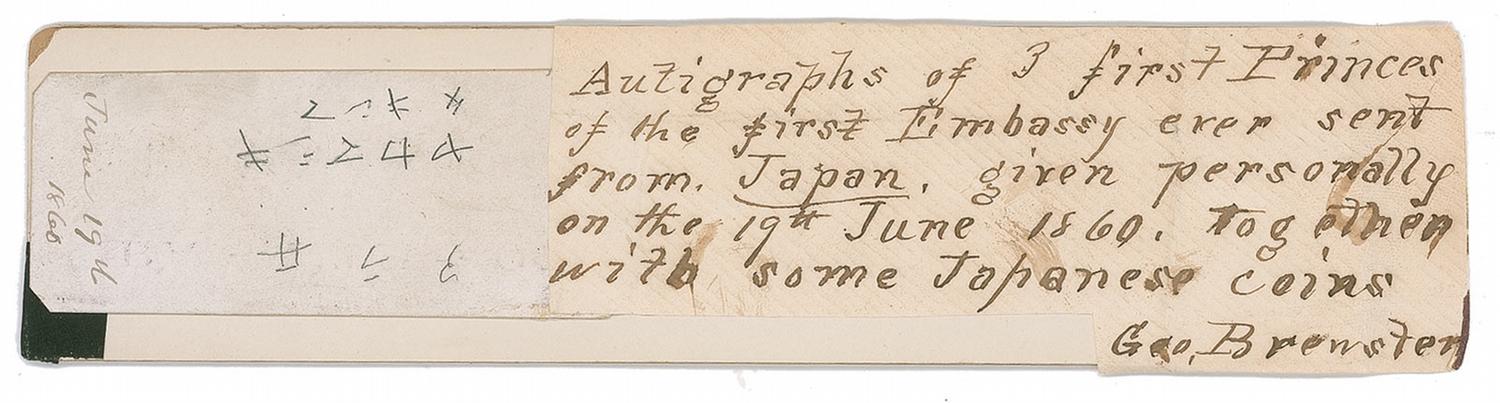 June 19th
1860
Autigraphs of 3 first Princes
of the first Embassy ever sent
from. Japan. given personally
on the 19th June 1860. together
with some Japanese coins
Geo. Brewster